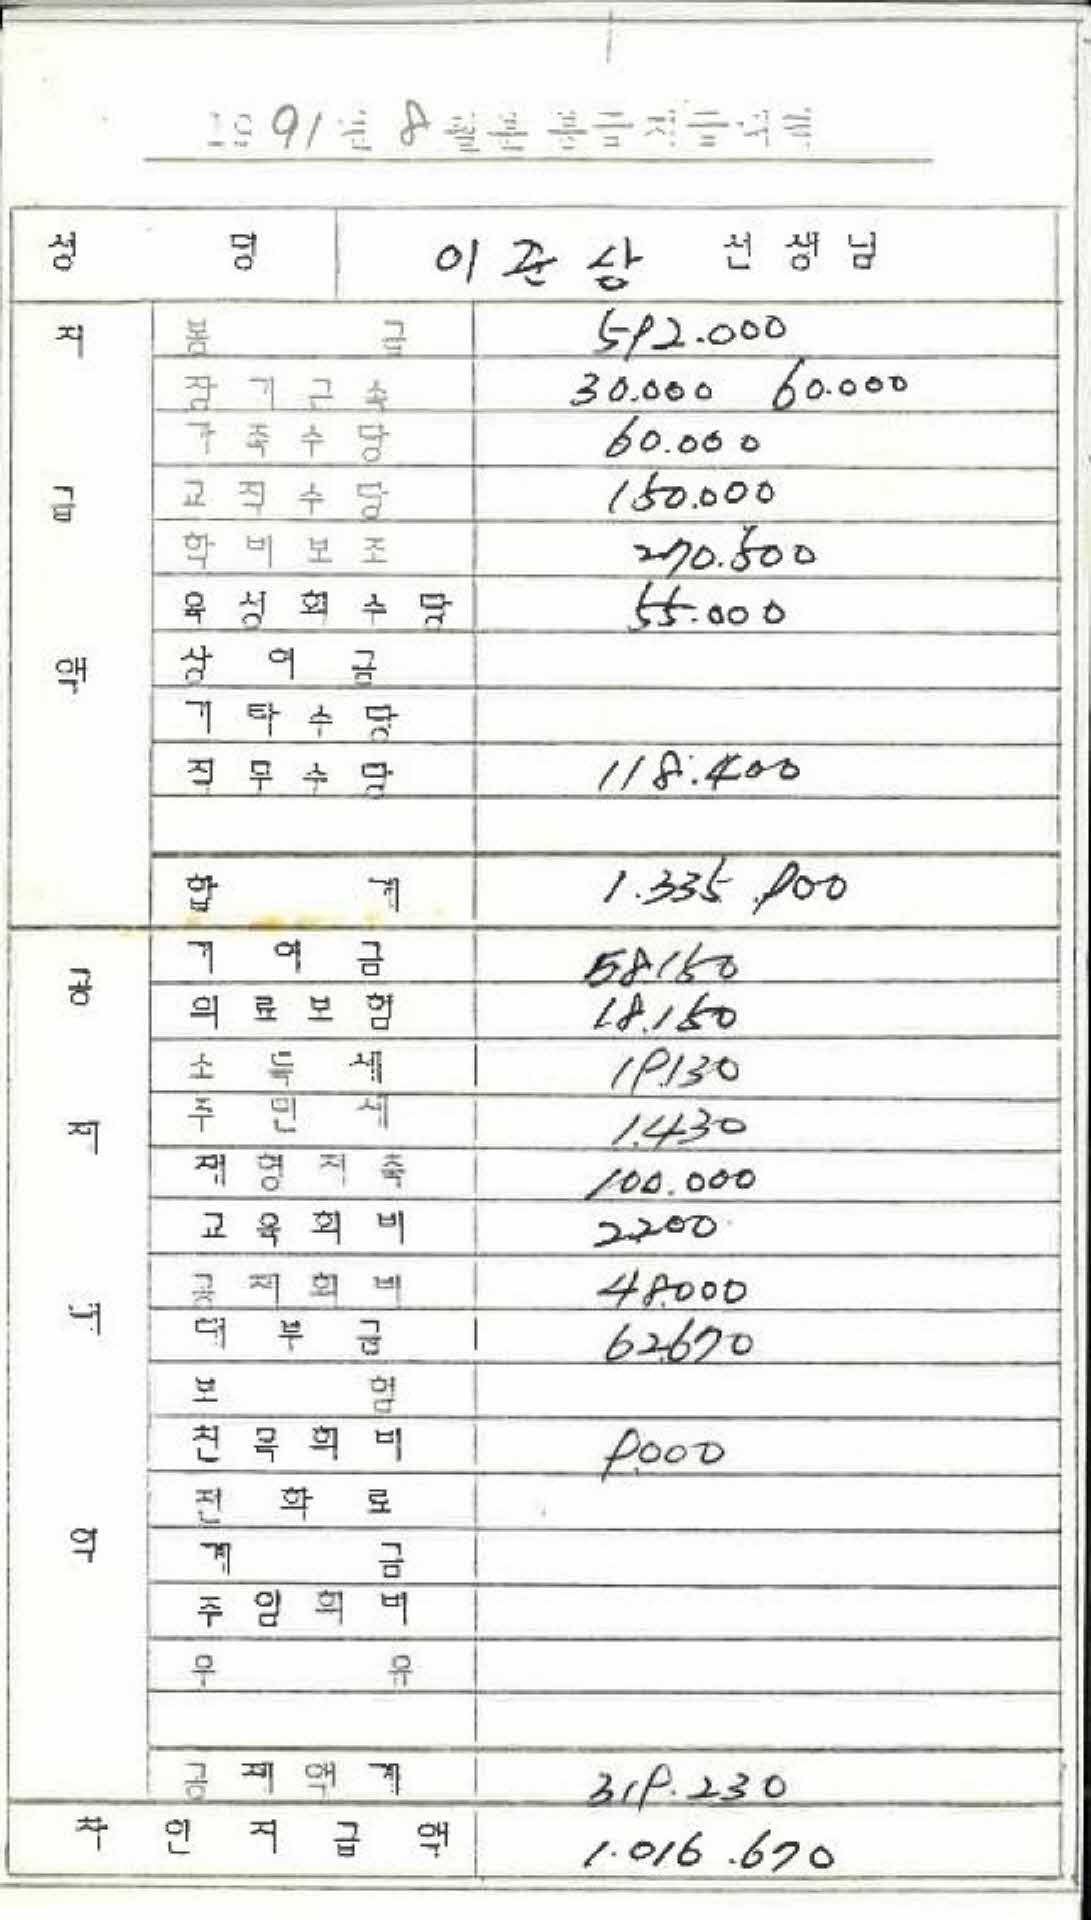 1991년 8월분 봉급지급명세표
성 명 이준상 선생님
지급액
봉 급 592.000
장기근속 30.000 60.000
가족수당 60.000
교직수당 150.000
학비보조 270.500
육성회수당 55.000
상여금
기타수당
직무수당 118.400
합 계 1.335.900
공제내역
기여금 58.150
의료보험 18.150
소득세 19.130
주민세 1.430
재형저축 100.000
교육회비 2.200
공제회비 48.000
대부금 62.670
보 험
친목회비 9.000
전화료
계 금
주임회비
우 유
공제액계 319.230
차인지급액 1.016.670